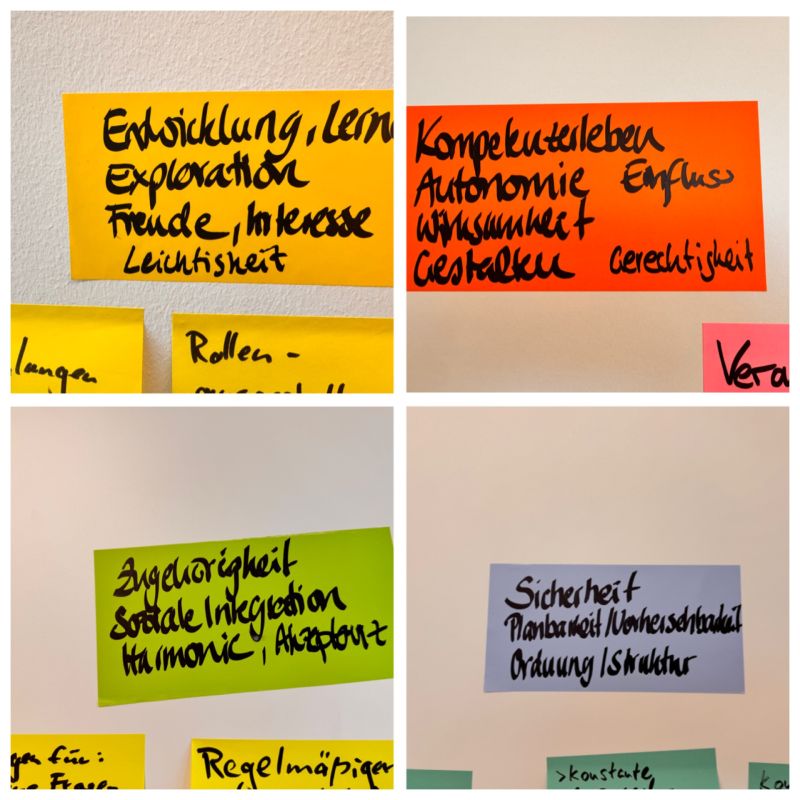 Entwicklung, Lern
Exploration
Freude, Interesse
Leichtigkeit
lungen
Rollen -
Kompetenzerleben
Autonomie Einfluss
Wirksamkeit
Gestalten Gerechtigkeit
Vera
Zugehörigkeit
Soziale Integration
Harmonie, Akzeptanz
gen für:
Regelmäßiger
Sicherheit
Planbarkeit/Vorhersehbarkeit
Ordnung/Struktur
>konstante
Kon